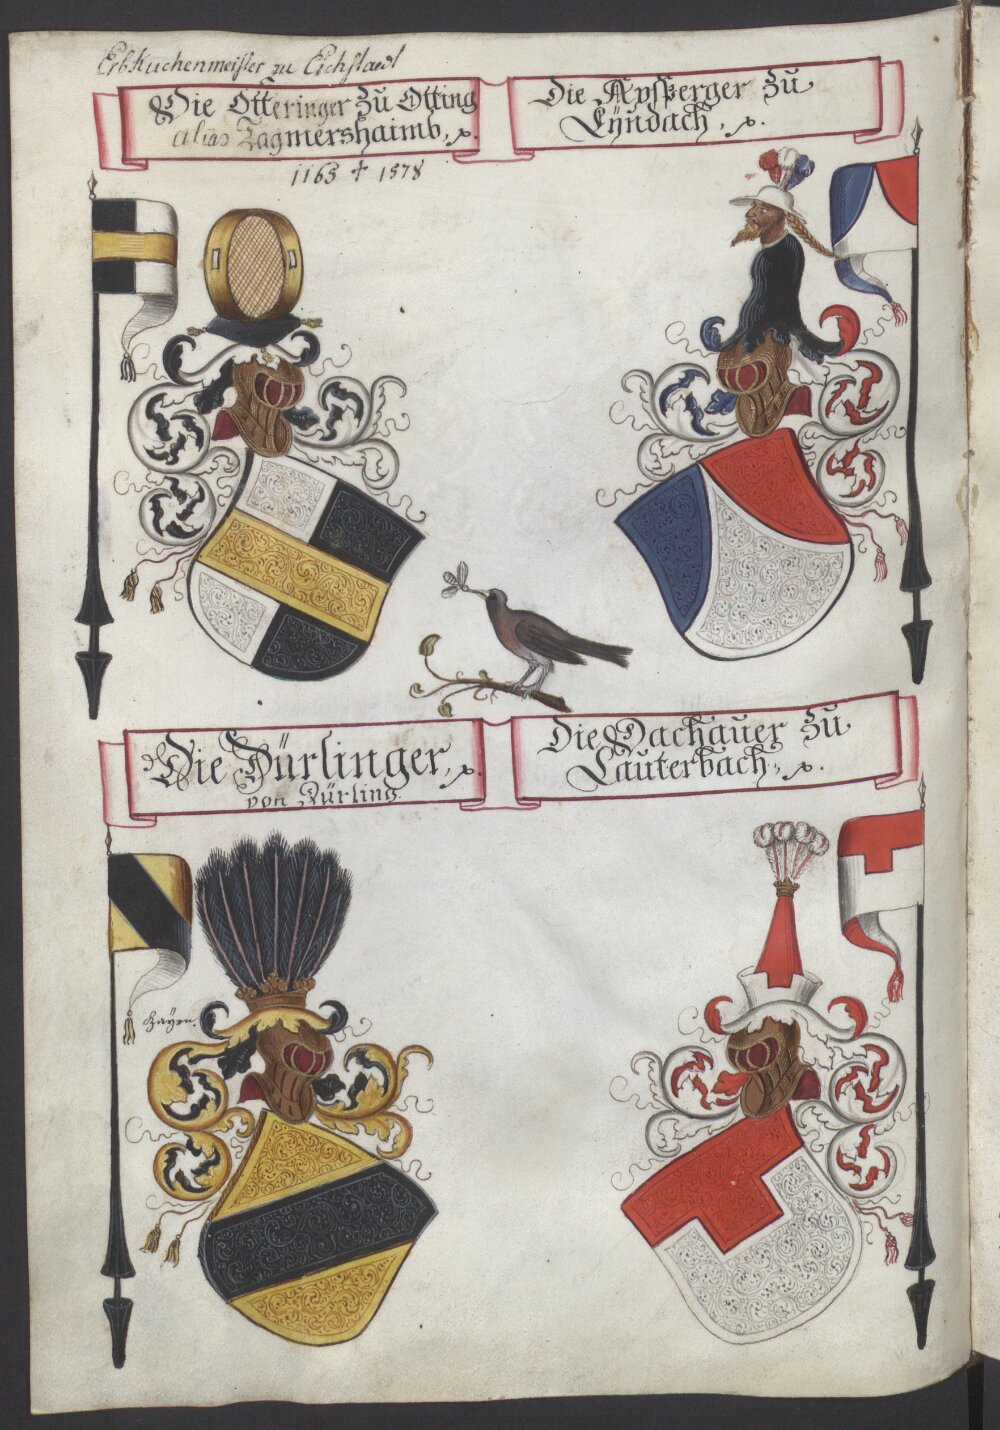 ErbKuchenmeister zu Eichstaedt
Die Otteringer Zu Otting
alias Tagmershaimb,
1163 † 1578
Die Apsperger Zu
Lyndach,
Die Dürlinger,
von Dürling
Die Dachauer Zu
Lauterbach,
Bayrn.